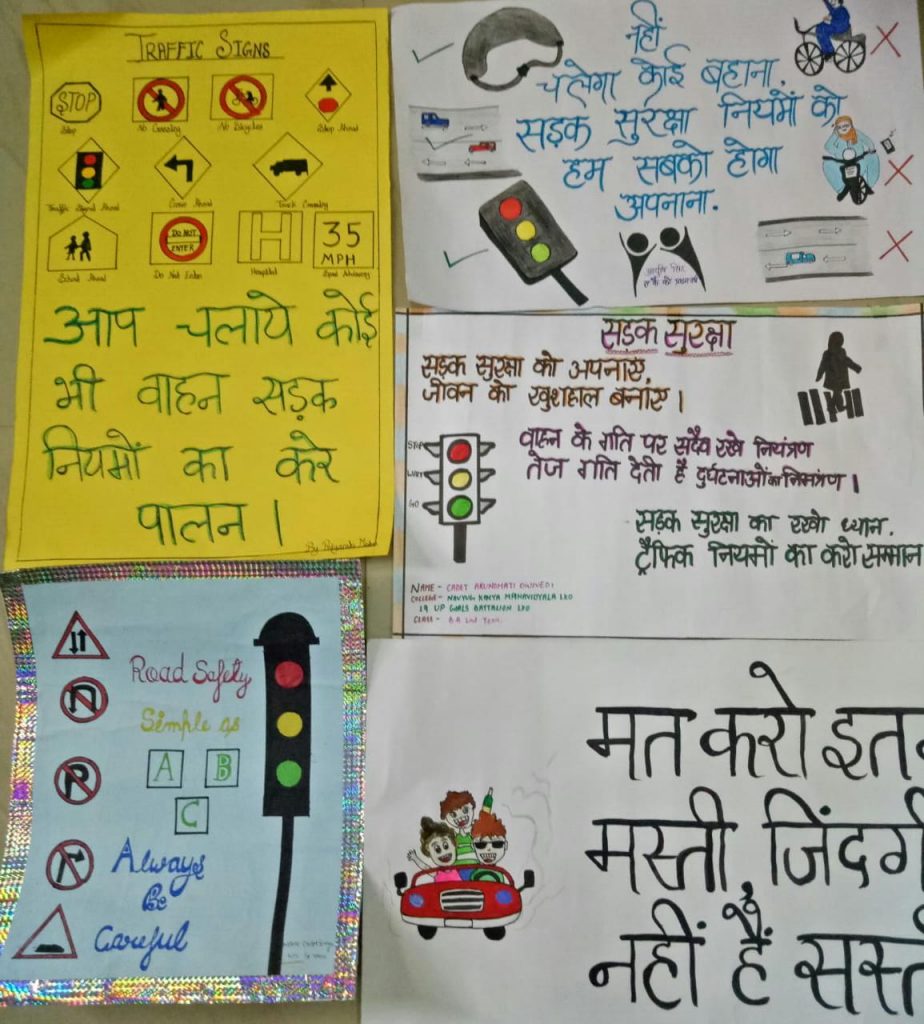 TRAFFIC SIGNS
STOP
Stop
No Crossing
No Bicycles
Stop Ahead
Traffic Signal Ahead
Curve Ahead
Truck Crossing
School Ahead
DO NOT
ENTER
Do Not Enter
H
Hospital
35
MPH
Speed Advisory
आप चलाये कोई
भी वाहन सड़क
नियमों का करे
पालन ।
नहीं
चलेगा कोई बहाना.
सड़क सुरक्षा नियमों को
हम सबको होगा
अपनाना.
सड़क सुरक्षा
सड़क सुरक्षा को अपनाए,
जीवन को खुशहाल बनाए ।
वाहन के गति पर सदैव रखे नियंत्रण
तेज गति देती है दुर्घटनाओं का निमंत्रण ।
STOP
GO
सड़क सुरक्षा का रखो ध्यान.
ट्रैफिक नियमों का करो सम्मान
NAME - CADET ARUNDHATI DWIVEDI
COLLEGE - NAVYUG KANYA MAHAVIDYALA LKO
19 UP GIRLS BATTALION LKO
CLASS - B.A Year
Road Safety
Simple as
A B
C
Always
Be
Careful
मत करो इतन
मस्ती, जिंदगी
नहीं है सस्त